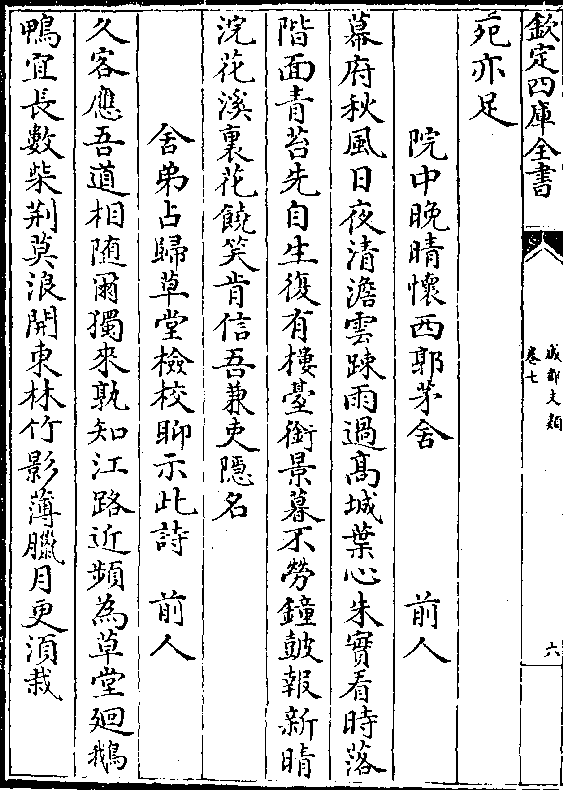 欽定四庫全書
成都文類
卷七
六
苑亦足
院中晚晴懷西郭茅舍　前人
幕府秋風日夜清澹雲踈雨過髙城葉心朱實看時落
階面青苔先自生復有樓臺銜景暮不勞鐘鼓報新晴
浣花溪裏花饒笑肯信吾兼吏隠名
舍弟占歸草堂檢校聊示此詩　前人
久客應吾道相随爾獨來孰知江路近頻為草堂廻鵝
鴨宜長數柴荆莫浪開東林竹影薄臘月更湏栽